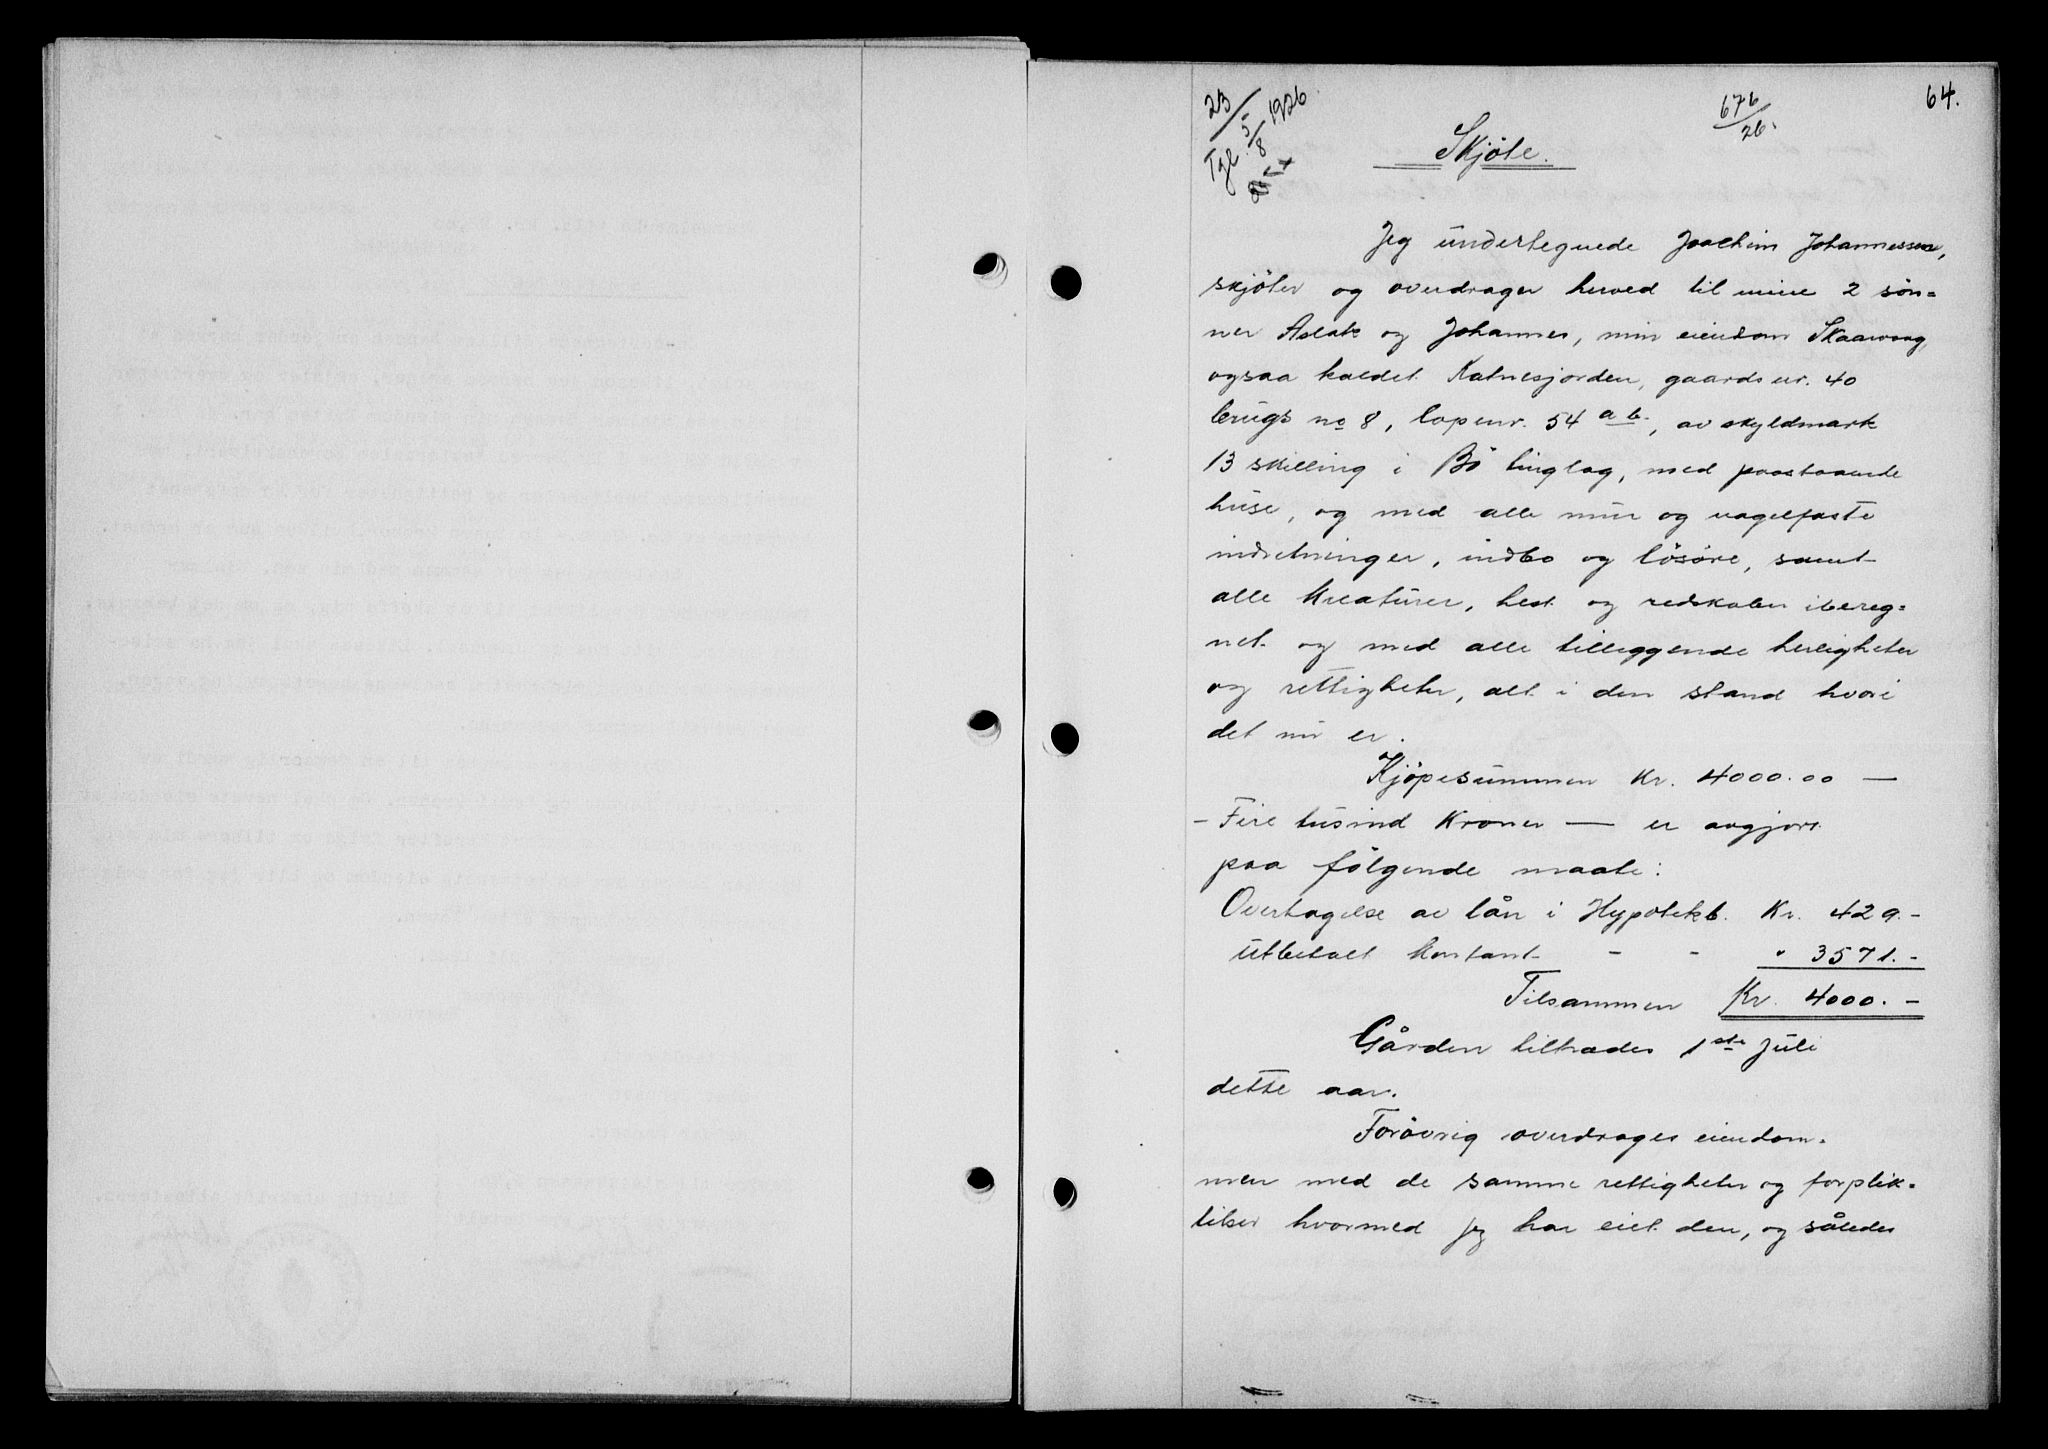 64.
676/26.
23/Tgl. 5/8 1926.
Skjöte.
Jeg undertegnede Joachim Johannessen,
skjöter og overdrager herved til mine 2 søn=
ner Aslak og Johannes, min eiendom Skaarvaag,
ogsaa kaldet Katnesjorden, gaards nr. 40
brugs no 8, lopenr. 54 a b., av skyldmark
13 skilling i Bö tinglag, med paastaaende
huse, og med alle mur og nagelfaste
indretninger, indbo og lösöre, samt
alle kreaturer, hest og redskaber ibereg=
net og med alle tilleggende herligheter
og rettigheter, alt i den stand hvori
det nu er.
Kjöpesummen Kr. 4000.00 —
- Fire tusind Kroner — er avgjort
paa fölgende maate:
Overtagelse av lån i Hypotekb. Kr. 429.-
utbetalt kontant - - " 3571.-
Tilsammen Kr. 4000.-
Gården tiltrædes 1ste Juli
dette aar.
Forövrig overdrages eiendom=
men med de samme rettigheter og forplik=
telser hvormed jeg har eiet den, og således